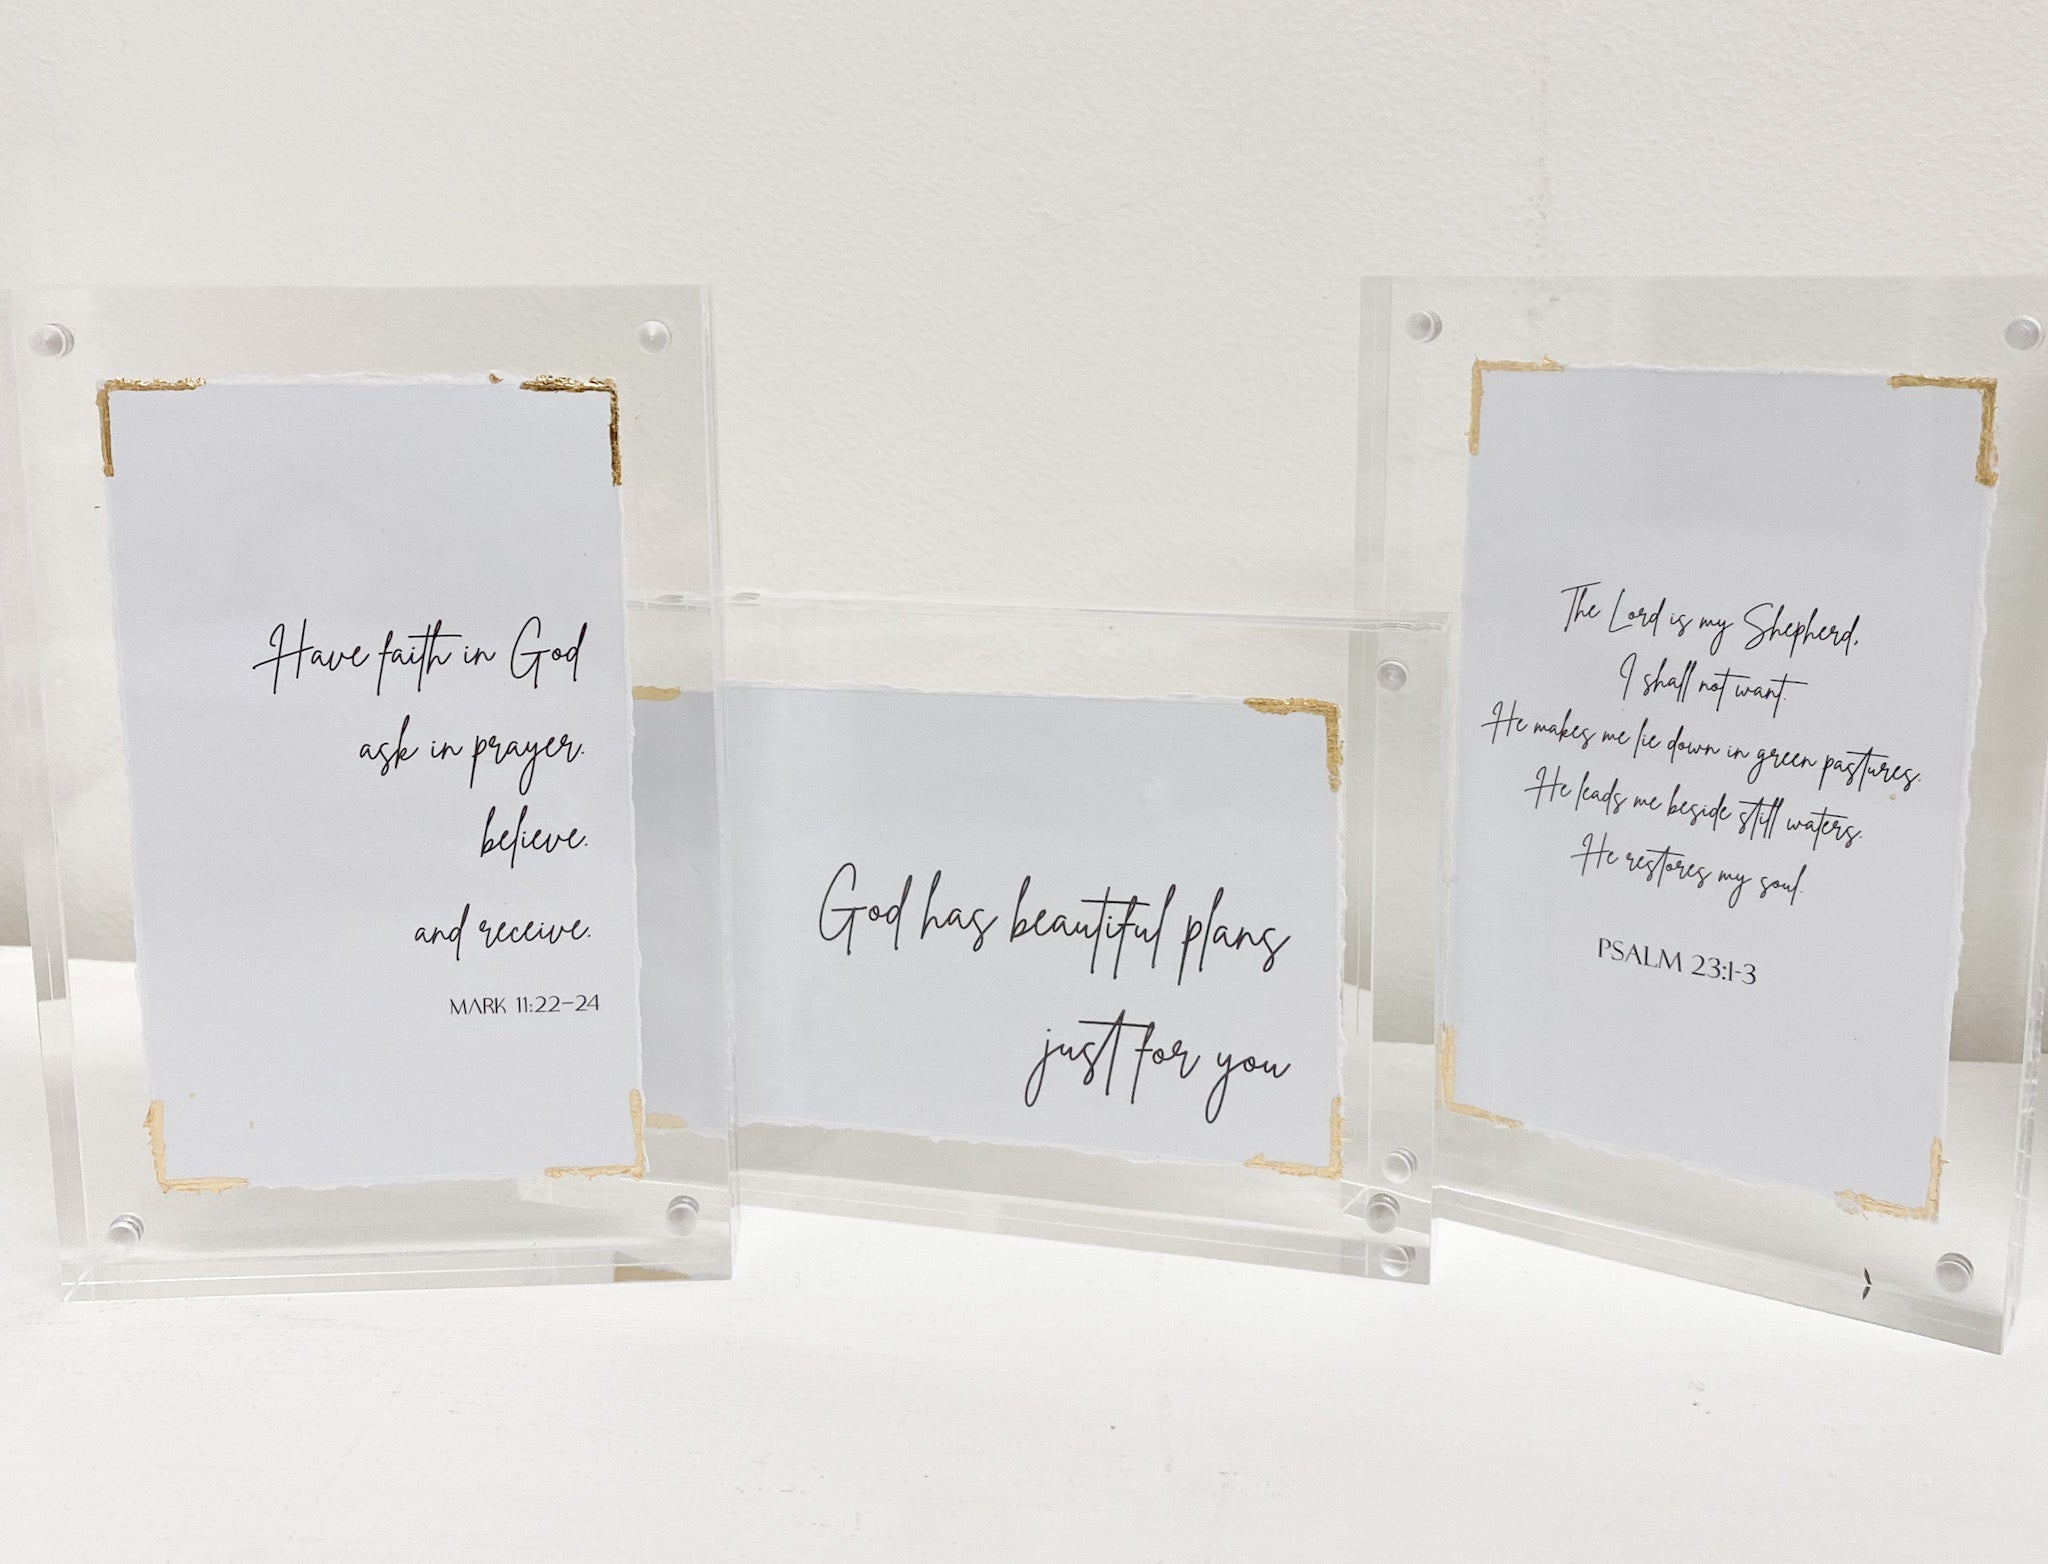 Have faith in God
ask in prayer.
believe.
and receive.
MARK 11:22-24
God has beautiful plans
just for you
The Lord is my Shepherd,
I shall not want.
He makes me lie down in green pastures.
He leads me beside still waters.
He restores my soul.
PSALM 23:1-3